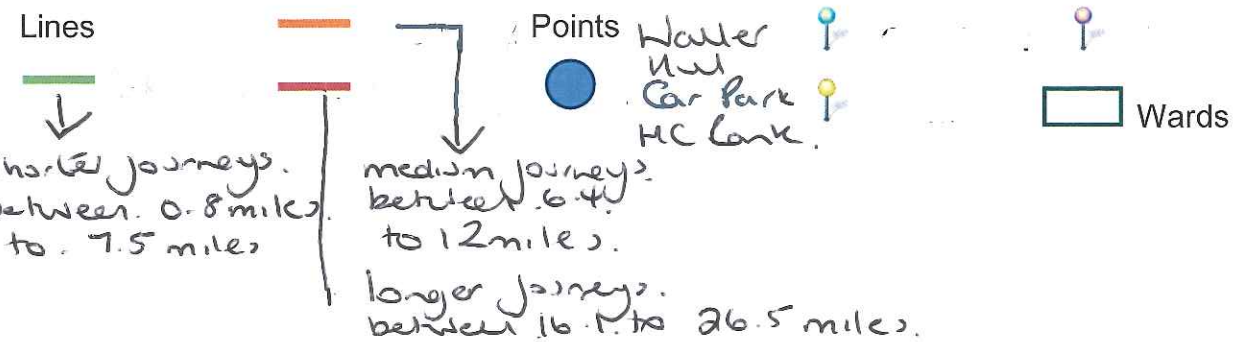 Lines
Points
Waller
Hill
Car Park
HC Rank.
Wards
shorter journeys.
between 0.8 miles.
to. 7.5 miles
medium journeys.
between 6.4
to 12 miles.
longer journeys.
between 16.1 to 26.5 miles.